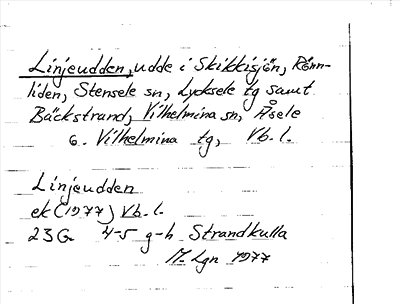 Linjeudden, udde i Skikkisjön, Rönn-
liden, Stensele sn, Lycksele tg samt
Bäckstrand, Vilhelmina sn, Åsele
o. Vilhelmina tg, Vb. l.
Linjeudden
ek (1977) Vb. l.
23G 4-5 g-h Strandkulla
M. Lgn 1977